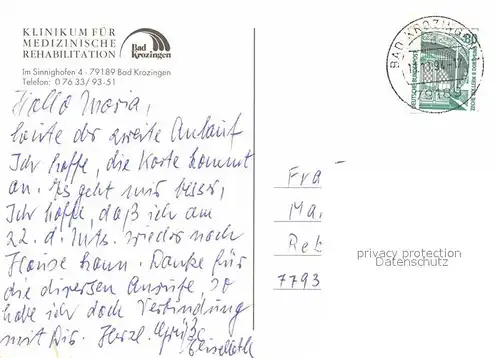 KLINIKUM FÜR
MEDIZINISCHE
REHABILITATION
Bad
Krozingen
Im Sinnighofen 4 - 79189 Bad Krozingen
Telefon: 0 76 33 / 93-51
Hallo Maria,
heute der zweite Anlauf
Ich hoffe, die Karte kommt
an. Es geht mir besser,
Ich hoffe, daß ich am
22. d. Mts. wieder nach
Hause kann. Danke für
die diversen Anrufe so
habe ich doch Verbindung
mit Dir. Herzl. Grüße
BAD KROZINGEN
79189
80
DEUTSCHE BUNDESPOST
Fra
Ma
Reb
7793
privacy protection
Datenschutz